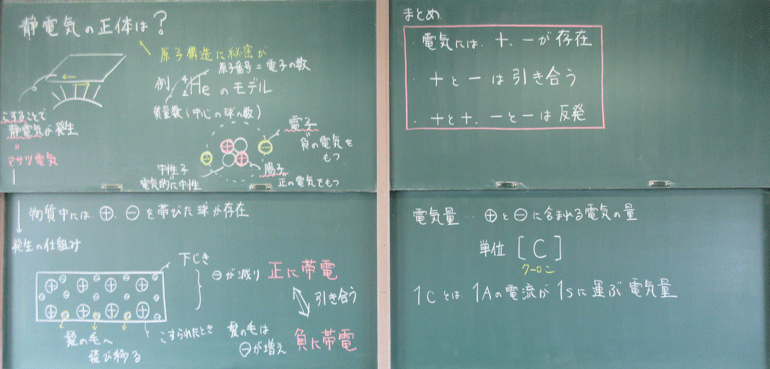 静電気の正体は?
原子構造に秘密が
原子番号=電子の数
例 ⁴₂He のモデル
質量数(中心の球の数)
こすることで
静電気が発生
=
マサツ電気
電子
負の電気を
もつ
中性子
電気的に中性
陽子
正の電気をもつ
物質中には ⊕, ⊖ を帯びた球が存在
発生の仕組み
下じき
⊖が減り 正に帯電
引き合う
こすられたとき
髪の毛へ
飛び移る
髪の毛は
⊖が増え 負に帯電
まとめ
・電気には +, − が存在
・+と−は引き合う
・+と+, −と−は反発
電気量…⊕と⊖に含まれる電気の量
単位 [C]
クーロン
1Cとは 1Aの電流が 1sに運ぶ電気量